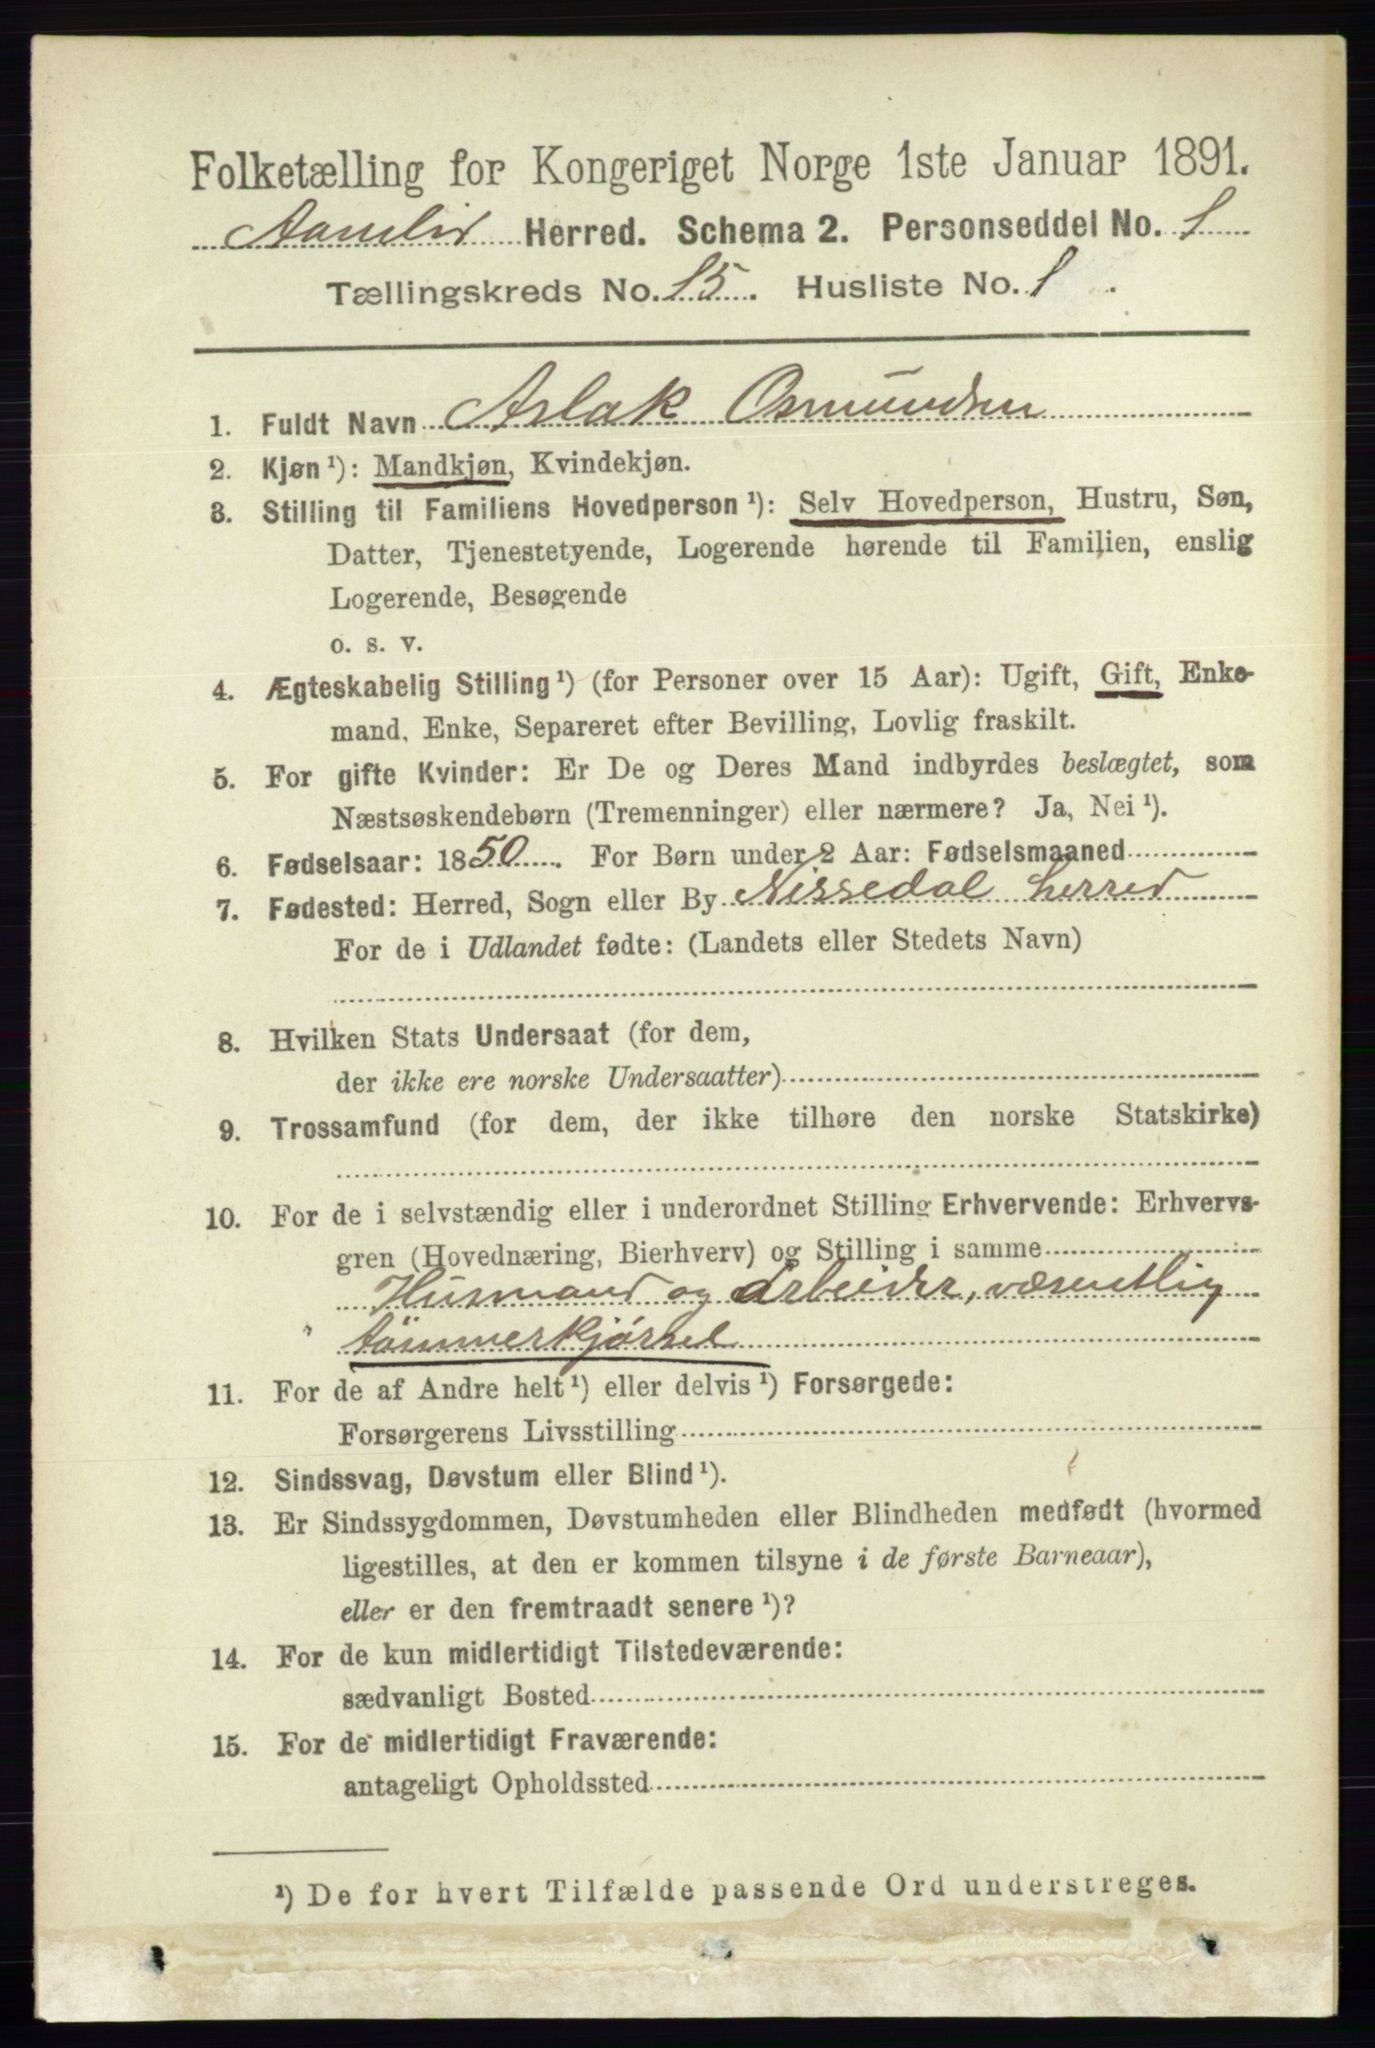 Folketælling for Kongeriget Norge 1ste Januar 1891.
Aamlid Herred. Schema 2. Personseddel No. 1
Tællingskreds No. 15. Husliste No. 1.
1. Fuldt Navn Aslak Osmundsen
2. Kjøn ¹): Mandkjøn, Kvindekjøn.
3. Stilling til Familiens Hovedperson ¹): Selv Hovedperson, Hustru, Søn,
Datter, Tjenestetyende, Logerende hørende til Familien, enslig
Logerende, Besøgende
o. s. v.
4. Ægteskabelig Stilling ¹) (for Personer over 15 Aar): Ugift, Gift, Enke-
mand, Enke, Separeret efter Bevilling, Lovlig fraskilt.
5. For gifte Kvinder: Er De og Deres Mand indbyrdes beslægtet, som
Næstsøskendebørn (Tremenninger) eller nærmere? Ja, Nei ¹).
6. Fødselsaar: 1850. For Børn under 2 Aar: Fødselsmaaned
7. Fødested: Herred, Sogn eller By Nissedal herred
For de i Udlandet fødte: (Landets eller Stedets Navn)
8. Hvilken Stats Undersaat (for dem,
der ikke ere norske Undersaatter)
9. Trossamfund (for dem, der ikke tilhøre den norske Statskirke)
10. For de i selvstændig eller i underordnet Stilling Erhvervende: Erhvervs-
gren (Hovednæring, Bierhverv) og Stilling i samme
Husmand og Arbeider, væsentlig
tömmerkjörsel
11. For de af Andre helt ¹) eller delvis ¹) Forsørgede:
Forsørgerens Livsstilling
12. Sindssvag, Døvstum eller Blind ¹).
13. Er Sindssygdommen, Døvstumheden eller Blindheden medfødt (hvormed
ligestilles, at den er kommen tilsyne i de første Barneaar),
eller er den fremtraadt senere ¹)?
14. For de kun midlertidigt Tilstedeværende:
sædvanligt Bosted
15. For de midlertidigt Fraværende:
antageligt Opholdssted
¹) De for hvert Tilfælde passende Ord understreges.